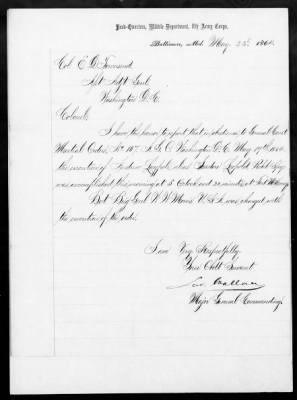 Head-Quarters, Middle Department, 8th Army Corps,
Baltimore, Md. May 23d 1864.
Col E. D. Townsend
Asst Adjt Genl
Washington D. C.
Colonel
I have the honor to report that in obedience to General Court
Martial Orders, No 157. A. G. O. Washington D. C. May 17th 1864,
the execution of alias Rebel Spy
was accomplished this morning at 5 Oclock and 30 minutes at Fort McHenry
Bvt Brig Genl W W Morris U. S. A. was charged with
the execution of the order.
I am Very Respectfully
Your Obdt Servant
Lew Wallace
Major General Commanding